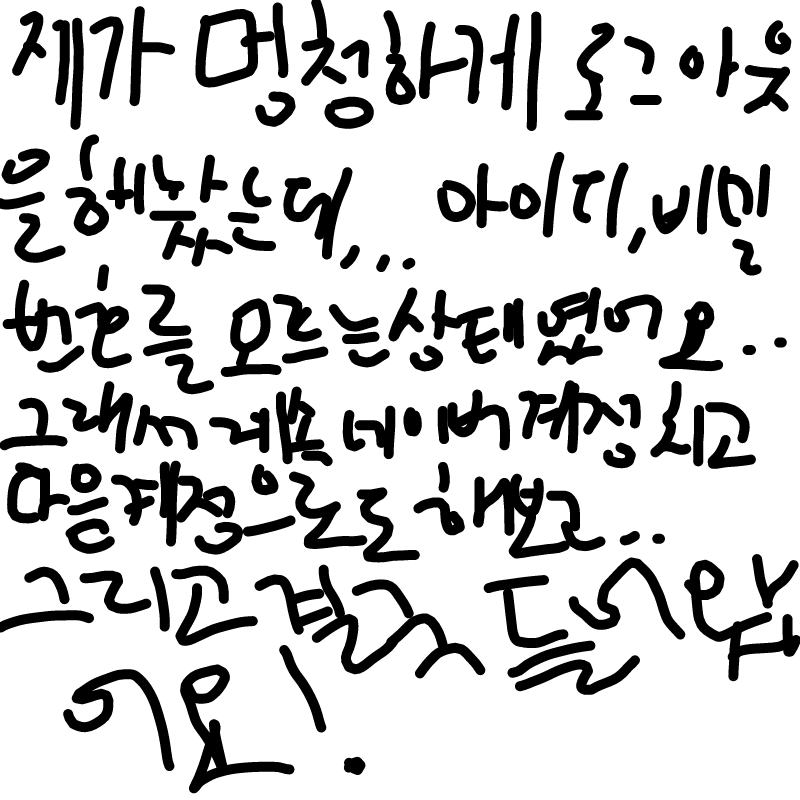 제가 멍청하게 로그아웃
을 해놨는데,.. 아이디,비밀
번호를 모르는 상태였어요..
그래서 계속 네이버 계정 치고
다음계정으로도 해보고...
그리고 결국 들어왔
어요!.